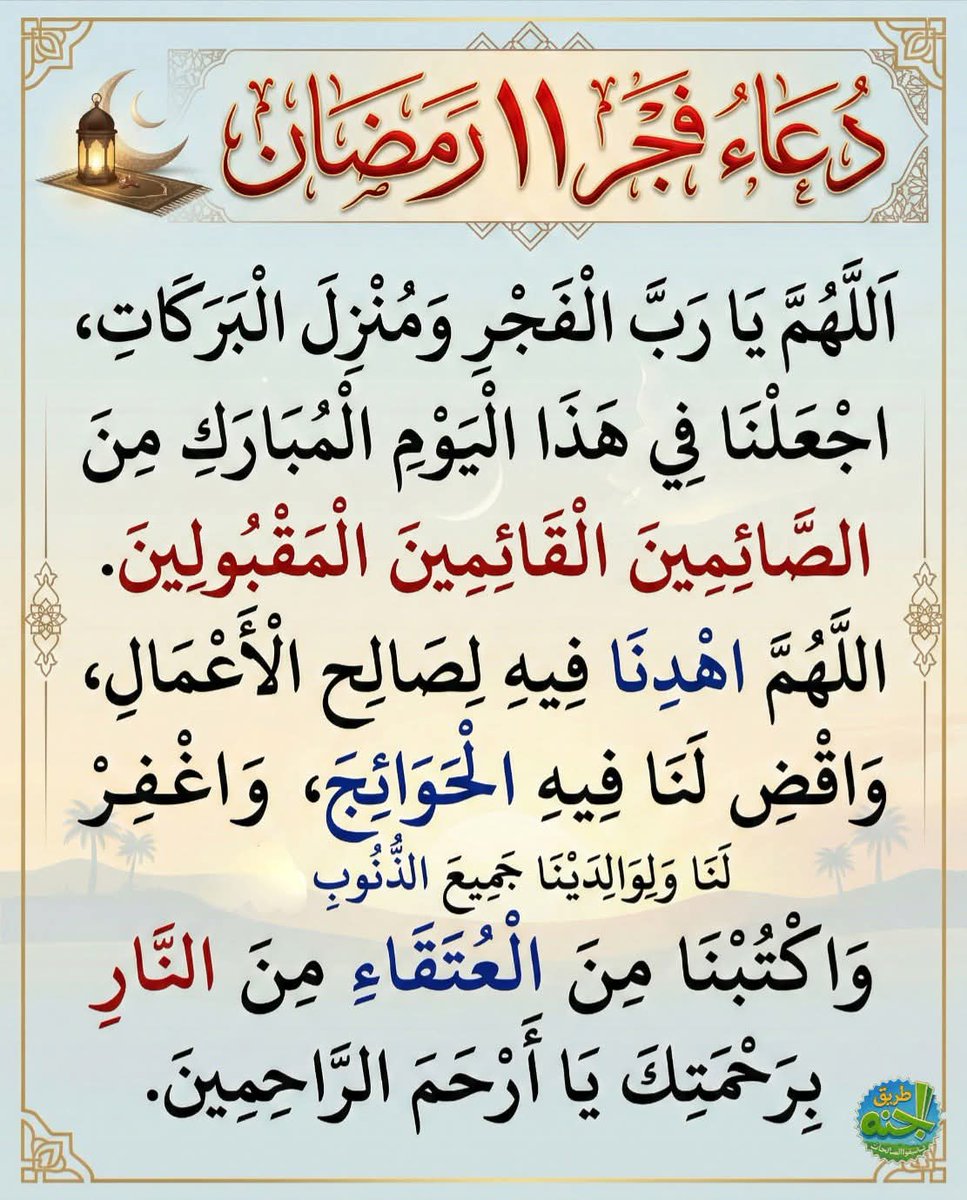 دُعَاءُ فَجْر ١١ رَمَضَان
اَللَّهُمَّ يَا رَبَّ الْفَجْرِ وَمُنْزِلَ الْبَرَكَاتِ،
اجْعَلْنَا فِي هَذَا الْيَوْمِ الْمُبَارَكِ مِنَ
الصَّائِمِينَ الْقَائِمِينَ الْمَقْبُولِينَ.
اللَّهُمَّ اهْدِنَا فِيهِ لِصَالِحِ الْأَعْمَالِ،
وَاقْضِ لَنَا فِيهِ الْحَوَائِجَ، وَاغْفِرْ
لَنَا وَلِوَالِدَيْنَا جَمِيعَ الذُّنُوبِ
وَاكْتُبْنَا مِنَ الْعُتَقَاءِ مِنَ النَّارِ
بِرَحْمَتِكَ يَا أَرْحَمَ الرَّاحِمِينَ.
طريق
الجنه